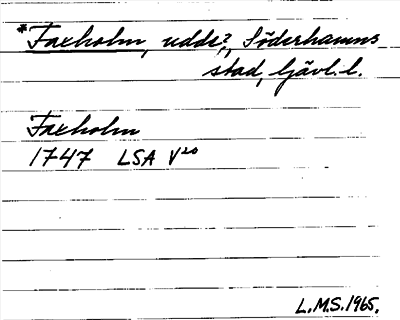 *Faxholm, udde?, Söderhamns
stad, Gävl. l.
Faxholm
1747 LSA V²⁰
L.M.S. 1965.